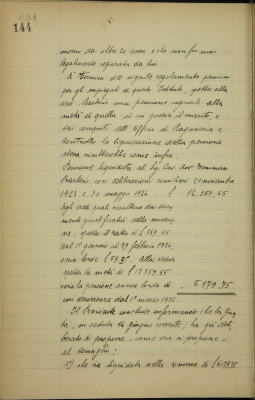 231
144
morno da oltre 20 anni e che non fu mai
legalmente separata da lui.
A' termini del vigente regolamento pensioni
per gli impiegati di questo Istituto, spetta alla
ved. Barberis una pensione uguale alla
metà di quella di cui godeva il marito, e
dai computi dell'Ufficio di Ragioneria e
Controllo la liquidazione della pensione
stessa risulterebbe come infra:
Pensione liquidata al Sig. Cav. Avv. Tommaso
Barberis con deliberazioni consiliari 21 novembre
1923 e 30 maggio 1924 £ 12.359,55
Agli eredi, quali risultano dai docu
menti giustificativi della successio
ne, spetta il rateo di £
dal 1° gennaio al 29 febbraio 1926,
ossia lorde £ alla vedova
spetta la metà di £ 12.359.55
ossia la pensione annua lorda di £ 6179,75
con decorrenza dal 1° marzo 1926.
Il Presidente conclude informando che la Giun
ta, in seduta 14 giugno corrente, ha già deli
berato di proporre, come ora si propone
al Consiglio:
1) che sia liquidata nella somma di £ 6179,75